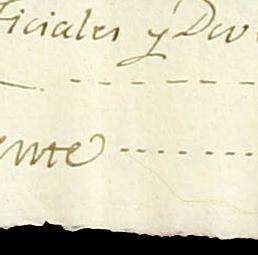 ficiales y Div
- - - - - -
ente - - - - - -